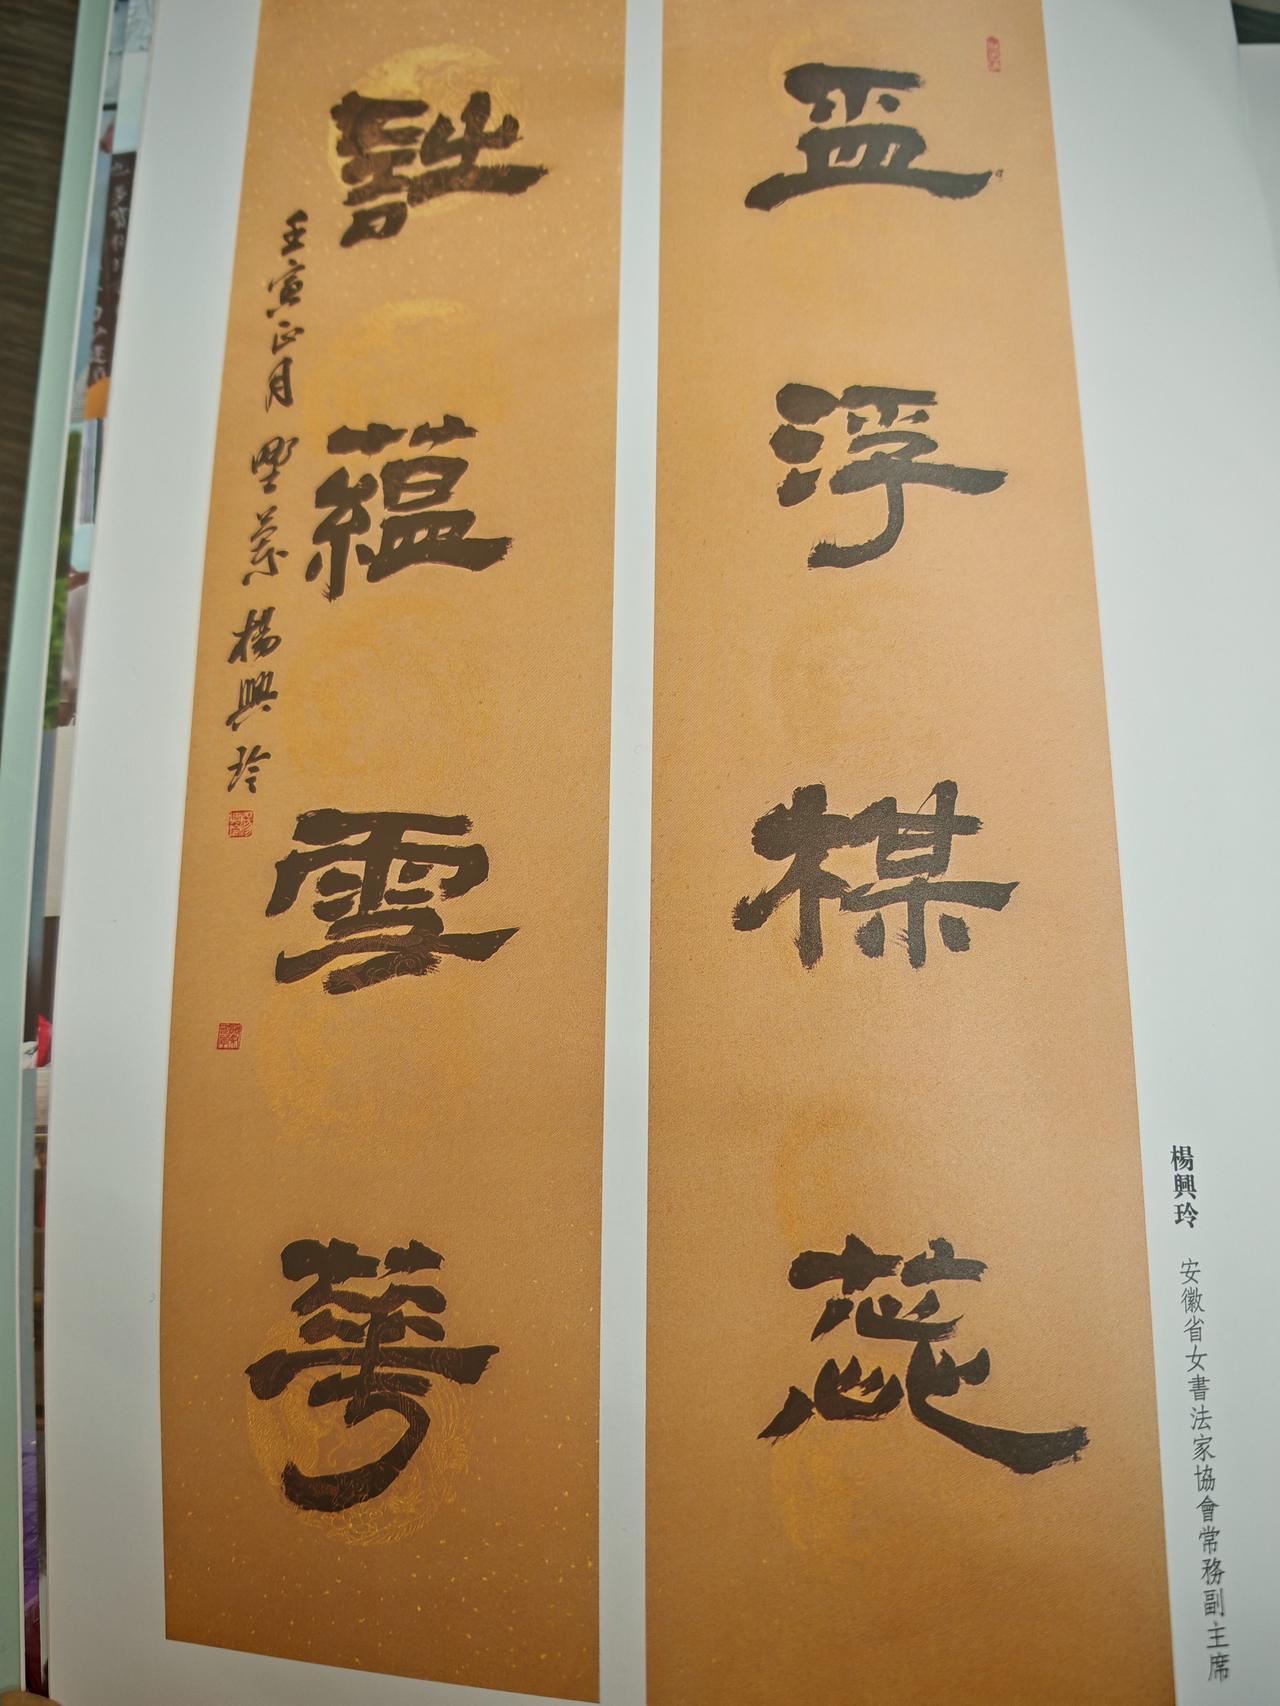 盃浮楳蕊
詩蘊雪華
壬寅正月 楊興玲
楊興玲 安徽省女書法家協會常務副主席